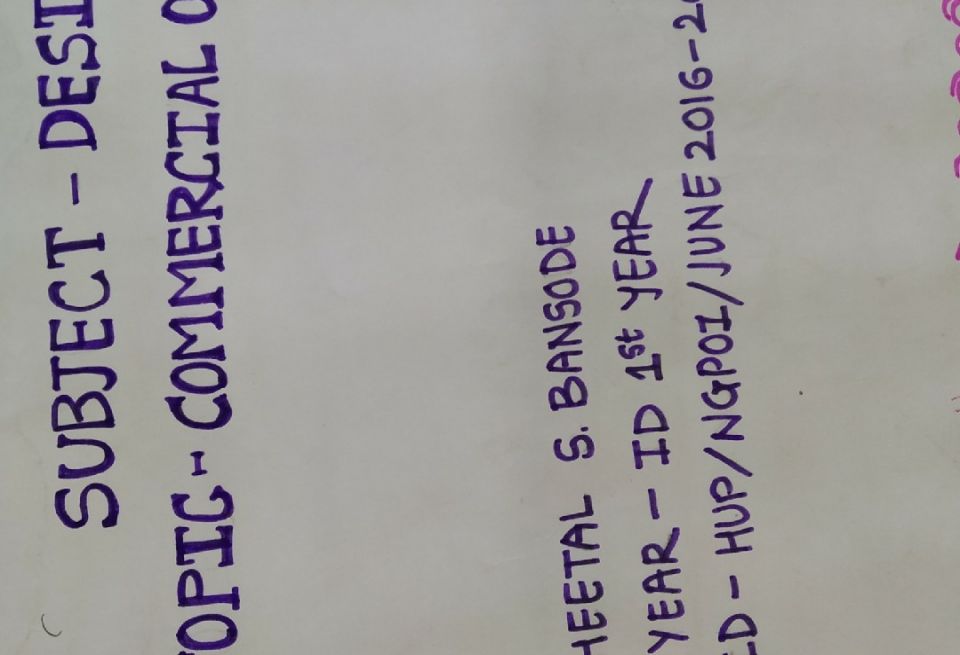 SUBJECT - DESI
OPIC - COMMERCIAL O
HEETAL S. BANSODE
YEAR - ID 1st YEAR
ID - HUP/NGP01/JUNE 2016-2